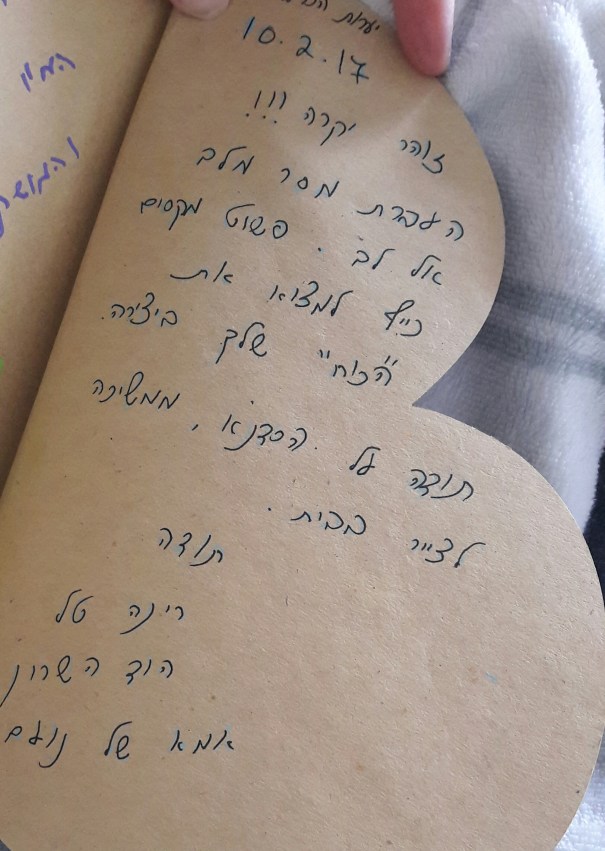 יערות
10.2.17
זוהר יקרה !!!
העברת מסר מלב
אל לב. פשוט מקסים
כייף למצוא את
"הכוח" שלך ביצירה.
תודה על הסדנא, ממשיכה
לצייר בבית.
תודה
רינה טל
הוד השרון
אמא של נועם